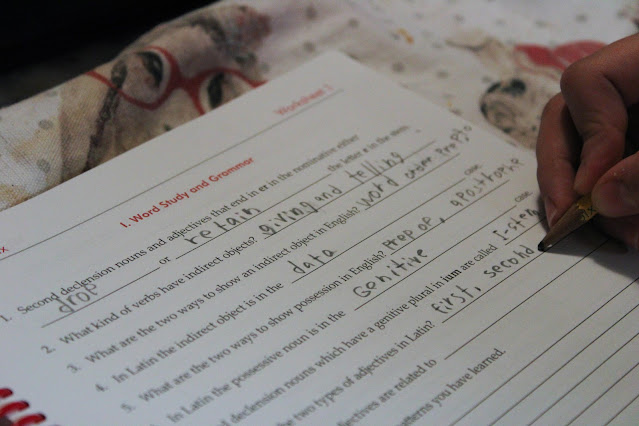 Worksheet 1
I. Word Study and Grammar
1. Second declension nouns and adjectives that end in er in the nominative either
drop or retain the letter e in the stem.
2. What kind of verbs have indirect objects? giving and telling
3. What are the two ways to show an indirect object in English? word order
4. In Latin the indirect object is in the data case.
5. What are the two ways to show possession in English? Prep of, apostrophe
In Latin the possessive noun is in the Genitive case.
declension nouns which have a genitive plural in ium are called I-stem
the two types of adjectives in Latin? first, second
adjectives are related to
patterns you have learned.